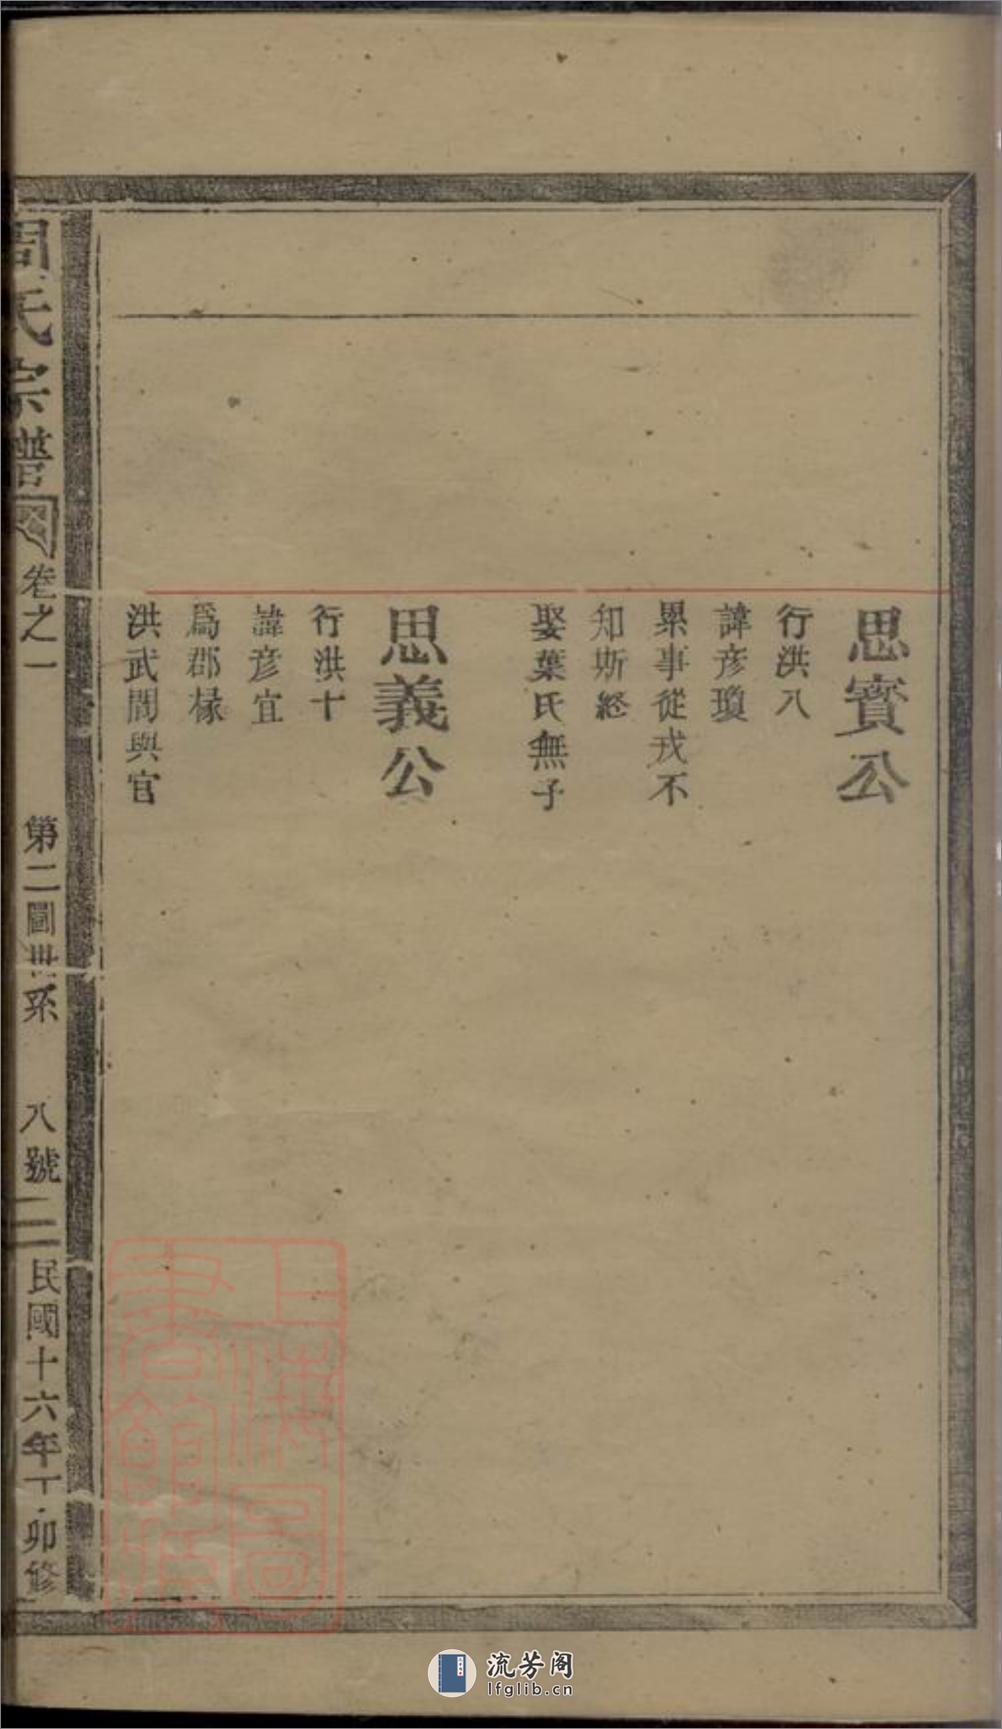 思賓公
行洪八
諱彦瓊
累事從戎不
知斯經
娶葉氏無子
思義公
行洪十
諱彦宜
爲郡椽
洪武間與官
周氏宗譜
卷之一
第二圖世系
八號
二
民國十六年丁卯修
上海圖書館藏
流芳阁
lfglib.cn